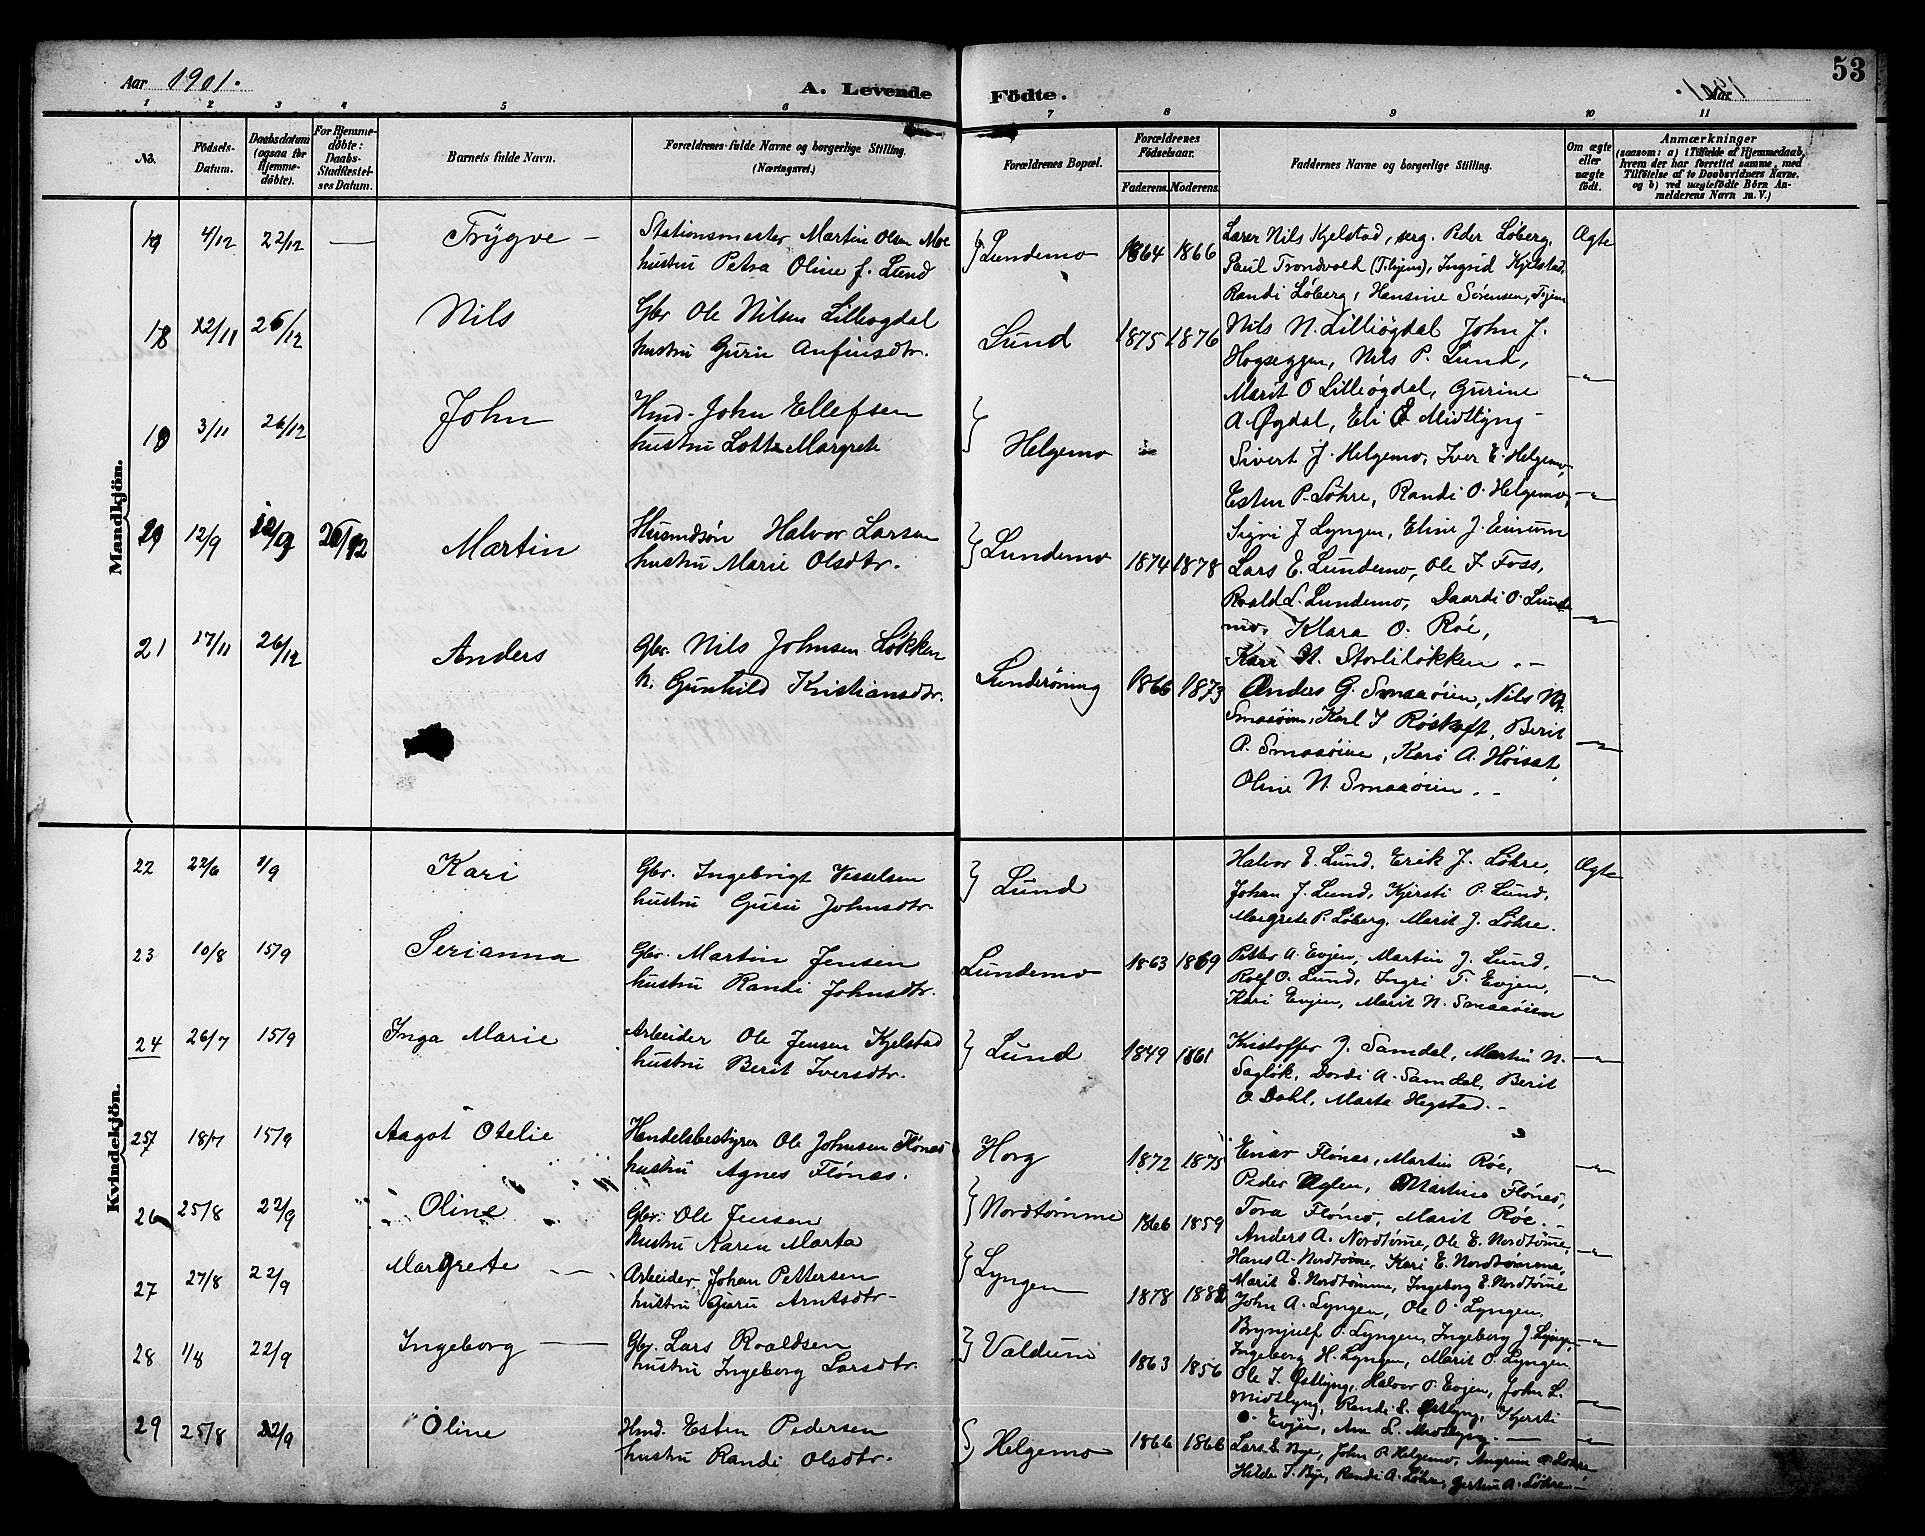 Aar 1901.
A. Levende Födte.
Aar 1901.
53
1 2 3 4 5 6 7 8 9 10 11
No.
Födsels-Datum.
Daabsdatum (ogsaa for Hjemme-döbte).
For Hjemme-döbte: Daabs-Stadfæstel-ses Datum.
Barnets fulde Navn.
Forældrenes fulde Navne og borgerlige Stilling. (Næringsvei.)
Forældrenes Bopæl.
Forældrenes Födselsaar.
Faderens. Moderens.
Faddernes Navne og borgerlige Stilling.
Om ægte eller uægte födt.
Anmærkninger
(saasom: a) i Tilfælde af Hjemmedaab,
hvem der har forrettet samme, med
Tilföielse af to Daabsvidners Navne.
og b) ved uægtefödte Börn An-
melderens Navn m. V.)
Mandkjön.
4/12 22/12 — Trygve –
Stationsmester Martin Olsen Moe
hustru Petra Oline f. Lund
Lundemo 1864 1866
Lærer Nils Kjelstad, serg. Peder Løberg,
Paul Trondvold (T.hjem), Ingrid Kjelstad,
Randi Løberg, Hansine Sørensen, Thjem
Ægte
18 12/11 26/12 Nils
Gbr Ole Nilsen Lilleøgdal
hustru Guru Anfinsdtr.
Lund 1875 1876
Nils N. Lilliøgdal John J.
Hogseggen, Nils P. Lund,
Marit O Lilliøgdal, Gurine
A. Øgdal, Eli E. Midtlyng –
-"-
19 3/11 26/12 John
Hmd. John Ellefsen
hustru Lotte Margrete
Helgemo
Sivert J. Helgemo, Iver E. Helgemo,
Esten P. Løhre, Randi O. Helgemo,
Sigri J Lyngen, Eline J. Einum
-"-
12/9 12/9 26/12 Martin
Husmdsøn Halvor Larsen
hustru Marie Olsdtr.
Lundemo 1874 1878
Lars E. Lundemo, Ole J. Foss,
Roald L. Lundemo, Daardi O. Lunde
mo, Klara O. Røe,
Kari N. Storliløkken . –
-"-
21 17/11 26/12 Anders
Gbr. Nils Johnsen Løkken
h. Gunhild Kristiansdtr.
Lunderöning 1866 1873
Anders G. Smaaøien, Nils M.
Smaaøien, Karl J Røskaft, Berit
A. Smaaøine, Kari A. Høisat,
Oline N. Smaaøien . –
-"-
Kvindekjön.
22 22/6 1/9 Kari
Gbr. Ingebrigt Vesselsen
hustru Guru Johnsdtr.
Lund
Halvor E. Lund, Erik J. Løhre,
Johan J. Lund, Kjersti P. Lund,
Margrete P. Løberg, Marit J. Løhre.
Ægte
23 10/8 15/9 Serianna
Gbr. Martin Jensen
hustru Randi Johnsdtr.
Lundemo 1863 1869
Petter A. Evjen, Martin J. Lund,
Rolf O. Lund, Ingri T. Evjen,
Kari Evjen, Marit N. Smaaøien
-"-
24 26/7 15/9 Inga Marie
Arbeider Ole Jensen Kjelstad
hustru Berit Iversdtr.
Lund 1849 1861
Kristoffer J. Samdal, Martin N.
Sagløk, Dordi A. Samdal, Berit
O. Dahl, Marta Hegstad. –
-"-
25 18/7 15/9 Aagot Otelie
Handelsbestyrer Ole Johnsen Flønes
hustru Agnes Flønæs.
Horg 1872 1875
Einar Flønæs, Martin Røe,
Peder Oglen, Martine Flønæs,
Tora Flønæs, Marit Røe. –
-"-
26 25/8 22/9 Oline
Gbr. Ole Jensen
hustru Karen Marta
Nordtømme 1866 1859
Anders A. Nordtømme, Ole E. Nordtømme,
Hans A. Nordtømme, Kari E. Nordtømme,
Marit E. Nordtømme, Ingeborg E. Nordtømme
-"-
27 27/8 22/9 Margrete —
Arbeider Johan Pettersen
hustru Guru Arntsdtr –
Lyngen 1878 1882
John A. Lyngen, Ole O. Lyngen,
Brynjulf O. Lyngen, Ingeberg J. Lyngen,
Ingeborg H. Lyngen, Marit O. Lyngen
-"-
28 1/8 22/9 Ingeborg —
Gbr. Lars Roaldsen
hustru Ingeborg Larsdtr.
Valdum 1863 1856
Ole J. Østlyng, Halvor O. Evjen, John L.
Midtlyng, Randi E. Østlyng, Kjersti
O. Evjen, Ane L. Midtlyng. –
-"-
29 25/8 22/9 Oline
Hmd. Esten Pedersen
hustru Randi Olsdtr.
Helgemo 1866 1866
Lars E. Bye, John P. Helgemo, Løhre
Hilde J. Bye, Randi A. Løhre, A. Løhre. –
-"-